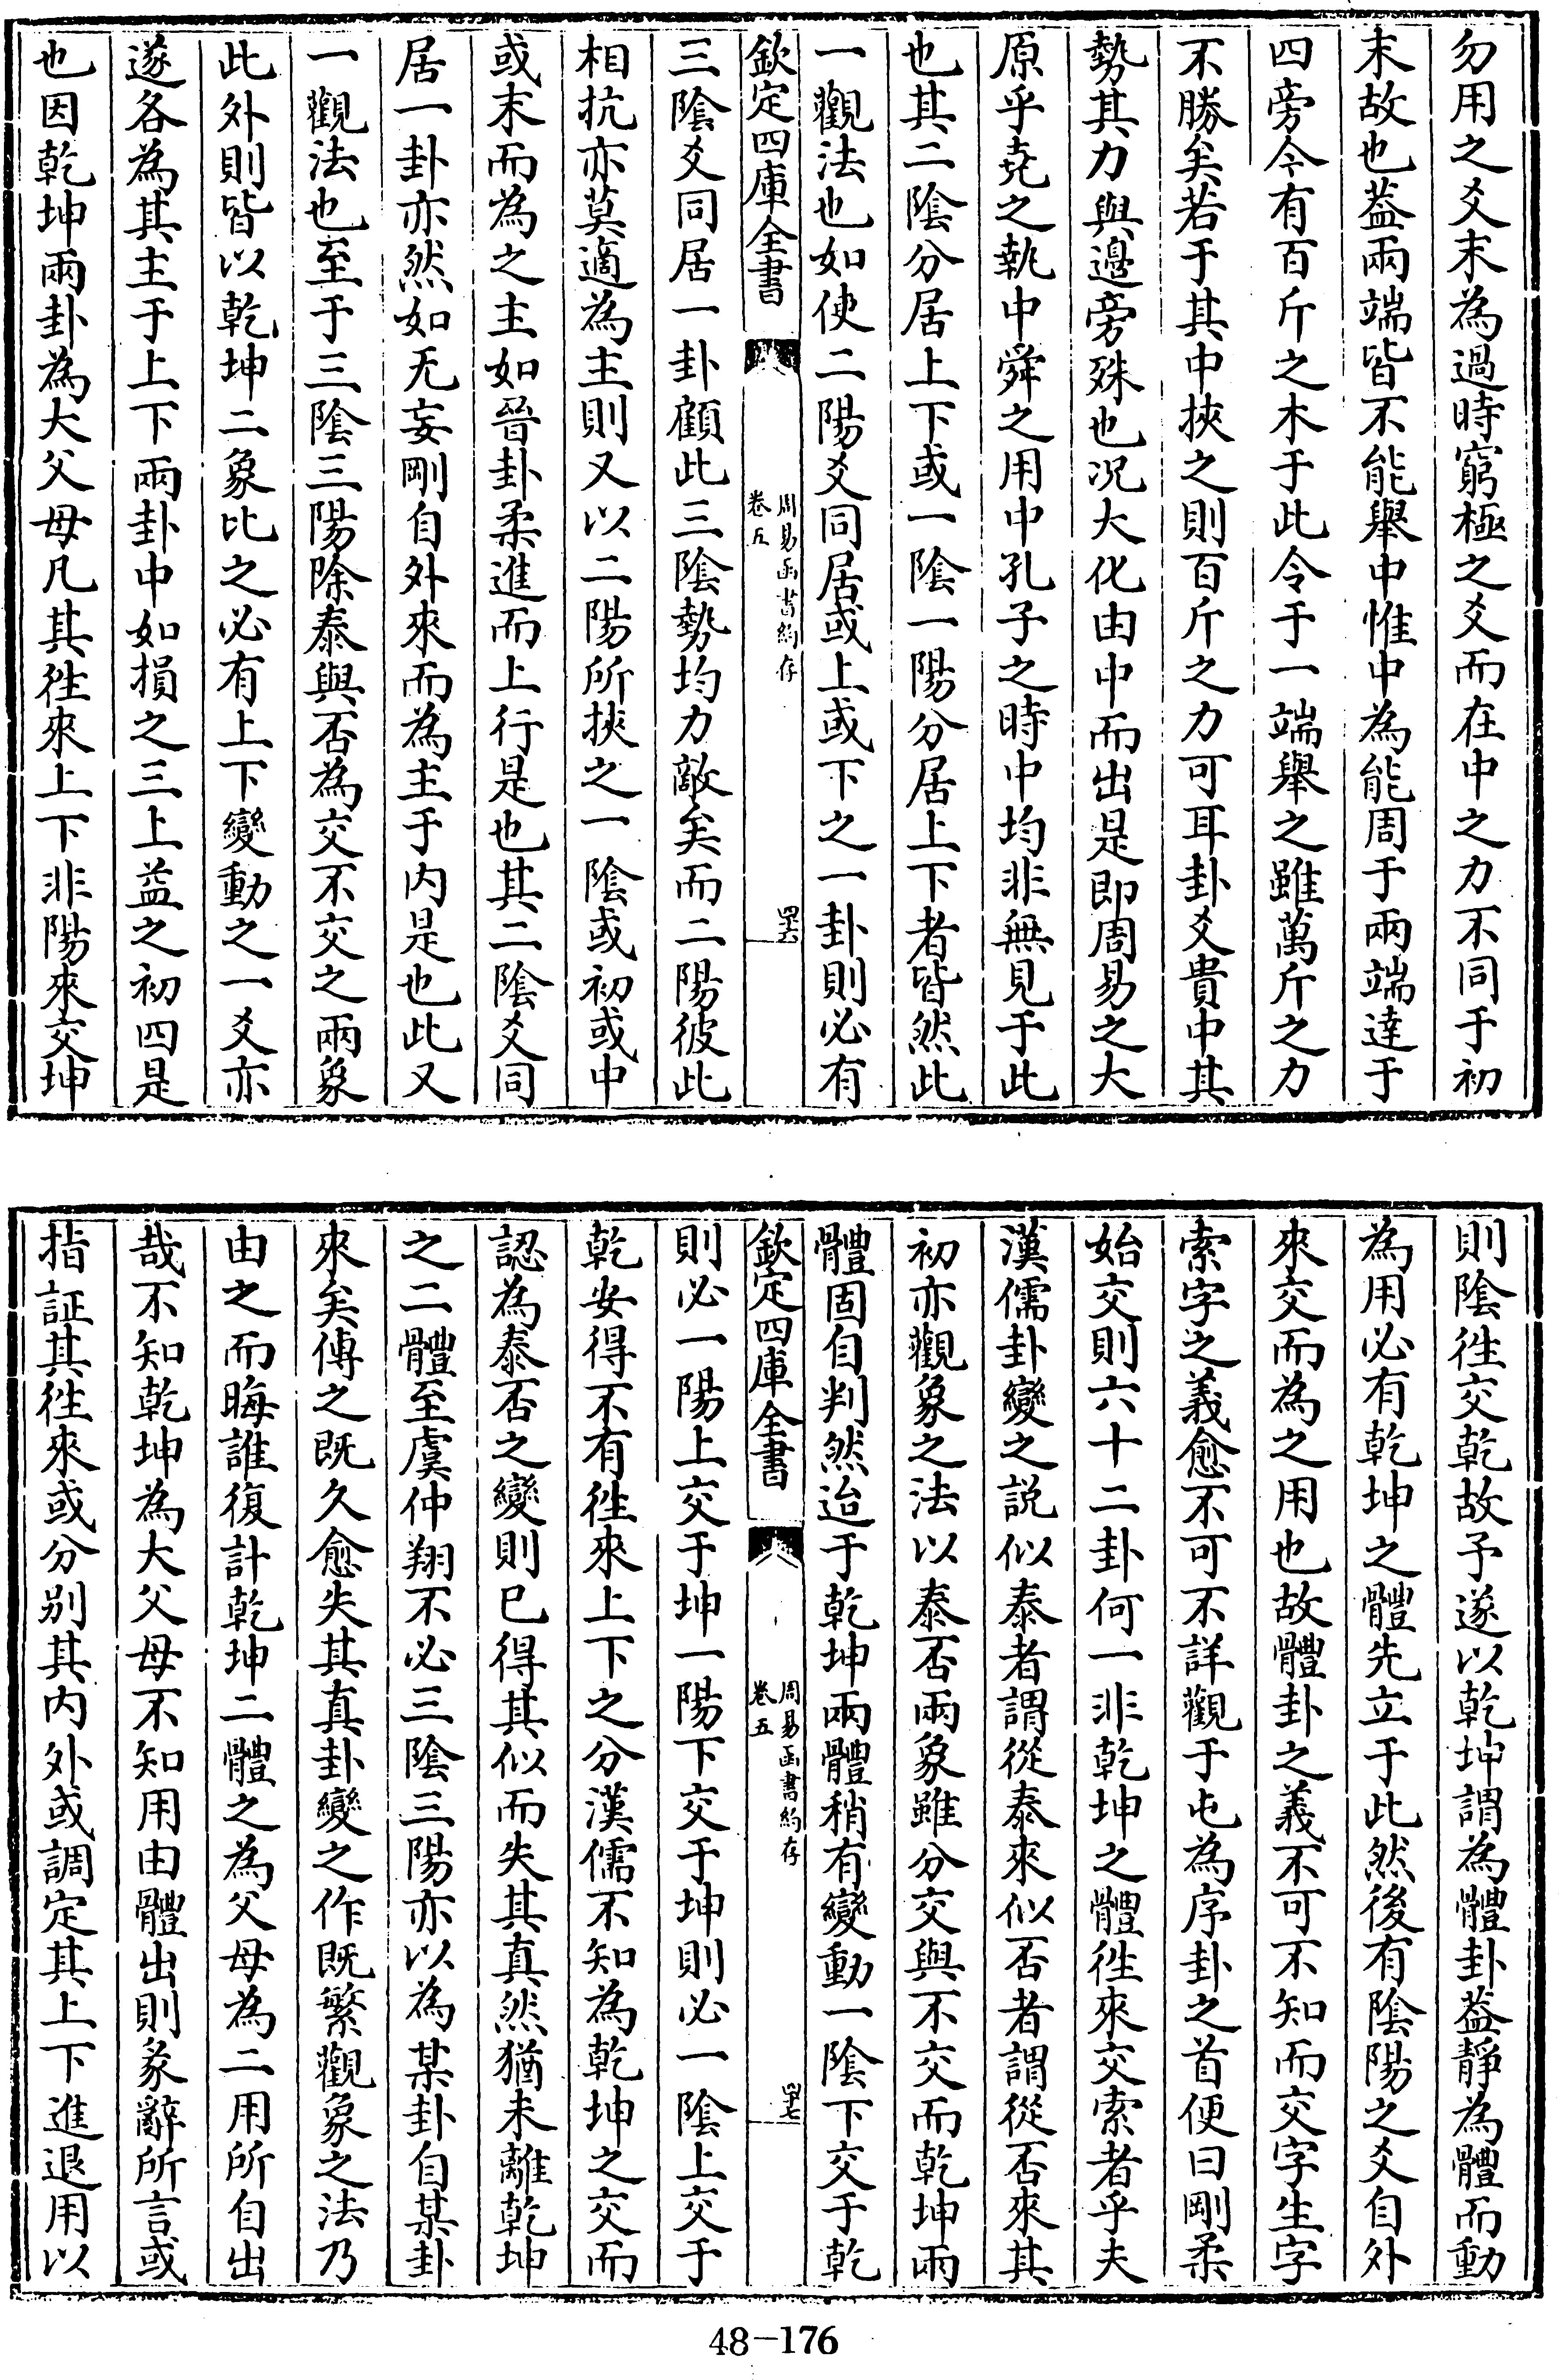 勿用之爻末為過時窮極之爻而在中之力不同于初
末故也葢兩端皆不能舉中惟中為能周于兩端達于
四旁今有百斤之木于此令于一端舉之雖萬斤之力
不勝矣若于其中挾之則百斤之力可耳卦爻貴中其
勢其力與邊旁殊也况大化由中而出是即周易之大
原乎堯之執中舜之用中孔子之時中均非無見于此
也其二陰分居上下或一陰一陽分居上下者皆然此
一觀法也如使二陽爻同居或上或下之一卦則必有
欽定四庫全書
周易函書約存
卷五
四十六
三陰爻同居一卦顧此三陰勢均力敵矣而二陽彼此
相抗亦莫適為主則又以二陽所挾之一陰或初或中
或末而為之主如晉卦柔進而上行是也其二陰爻同
居一卦亦然如无妄剛自外來而為主于内是也此又
一觀法也至于三陰三陽除泰與否為交不交之兩象
此外則皆以乾坤二象比之必有上下變動之一爻亦
遂各為其主于上下兩卦中如損之三上益之初四是
也因乾坤兩卦為大父母凡其徃來上下非陽來交坤
則陰徃交乾故予遂以乾坤謂為體卦葢靜為體而動
為用必有乾坤之體先立于此然後有陰陽之爻自外
來交而為之用也故體卦之義不可不知而交字生字
索字之義愈不可不詳觀于屯為序卦之首便曰剛柔
始交則六十二卦何一非乾坤之體徃來交索者乎夫
漢儒卦變之説似泰者謂從泰來似否者謂從否來其
初亦觀象之法以泰否兩象雖分交與不交而乾坤兩
體固自判然迨于乾坤兩體稍有變動一陰下交于乾
欽定四庫全書
周易函書約存
卷五
四十七
則必一陽上交于坤一陽下交于坤則必一陰上交于
乾安得不有徃來上下之分漢儒不知為乾坤之交而
認為泰否之變則已得其似而失其真然猶未離乾坤
之二體至虞仲翔不必三陰三陽亦以為某卦自某卦
來矣傳之既久愈失其真卦變之作既繁觀象之法乃
由之而晦誰復計乾坤二體之為父母為二用所自出
哉不知乾坤為大父母不知用由體出則彖辭所言或
指証其徃來或分别其内外或調定其上下進退用以
48-176